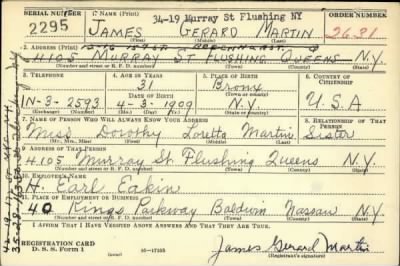 SERIAL NUMBER 1. NAME (Print) 34-19 Murray St Flushing NY ORDER NUMBER
2295 JAMES GERARD MARTIN 2631
(First) (Middle) (Last)
2. ADDRESS (Print)
4105 MURRAY ST FLUSHING QUEENS N.Y.
(Number and street or R. F. D. number) (Town) (County) (State)
3. TELEPHONE 4. AGE IN YEARS 5. PLACE OF BIRTH 6. COUNTRY OF CITIZENSHIP
31 Bronx
DATE OF BIRTH (Town or county)
IN-3-2593 4-3-1909 N.Y. U.S.A
(Exchange) (Number) (Mo.) (Day) (Yr.) (State or country)
7. NAME OF PERSON WHO WILL ALWAYS KNOW YOUR ADDRESS 8. RELATIONSHIP OF THAT PERSON
Miss Dorothy Loretta Martin Sister
(Mr., Mrs., Miss) (First) (Middle) (Last)
9. ADDRESS OF THAT PERSON
4105 Murray St. Flushing Queens N.Y.
(Number and street or R. F. D. number) (Town) (County) (State)
10. EMPLOYER'S NAME
H. Earl Eakin
11. PLACE OF EMPLOYMENT OR BUSINESS
40 Kings Parkway Baldwin Nassau N.Y.
(Number and street or R. F. D. number) (Town) (County) (State)
I AFFIRM THAT I HAVE VERIFIED ABOVE ANSWERS AND THAT THEY ARE TRUE.
REGISTRATION CARD
D. S. S. Form 1 16-17105 James Gerard Martin
(Registrant's signature)